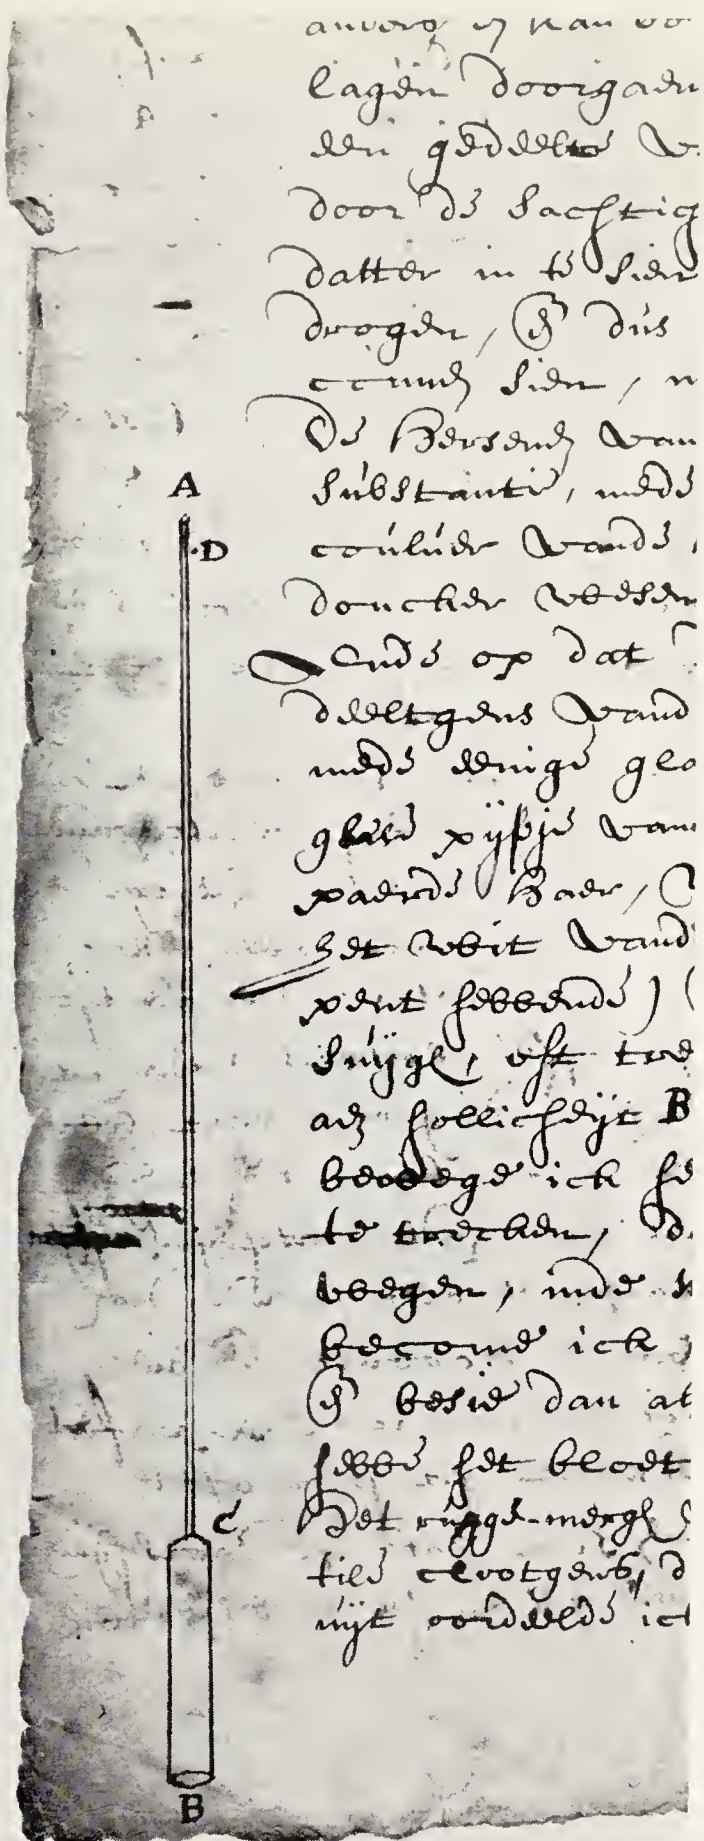 lagen doorgaen
een gedeelte v
door de sachtic
datter in te sien
drogen, en dus
connen sien, n
De Hersenen van
A
substantie, mede
D
couluer vande
doncker wesen
Ende op dat
deeltgens vand
mede eenige glo
glase pijpje van
paerde Haer,
het wit vand
pent hebbende) (
suijge, oft tre
aen hollicheijt B
beweege ick he
te trecken, d
wegen, inde
become ick
en besie dan al
hebbe het bloet
C
Het rugge-merg
tile clootgens, d
uijt oordeelde ick
B